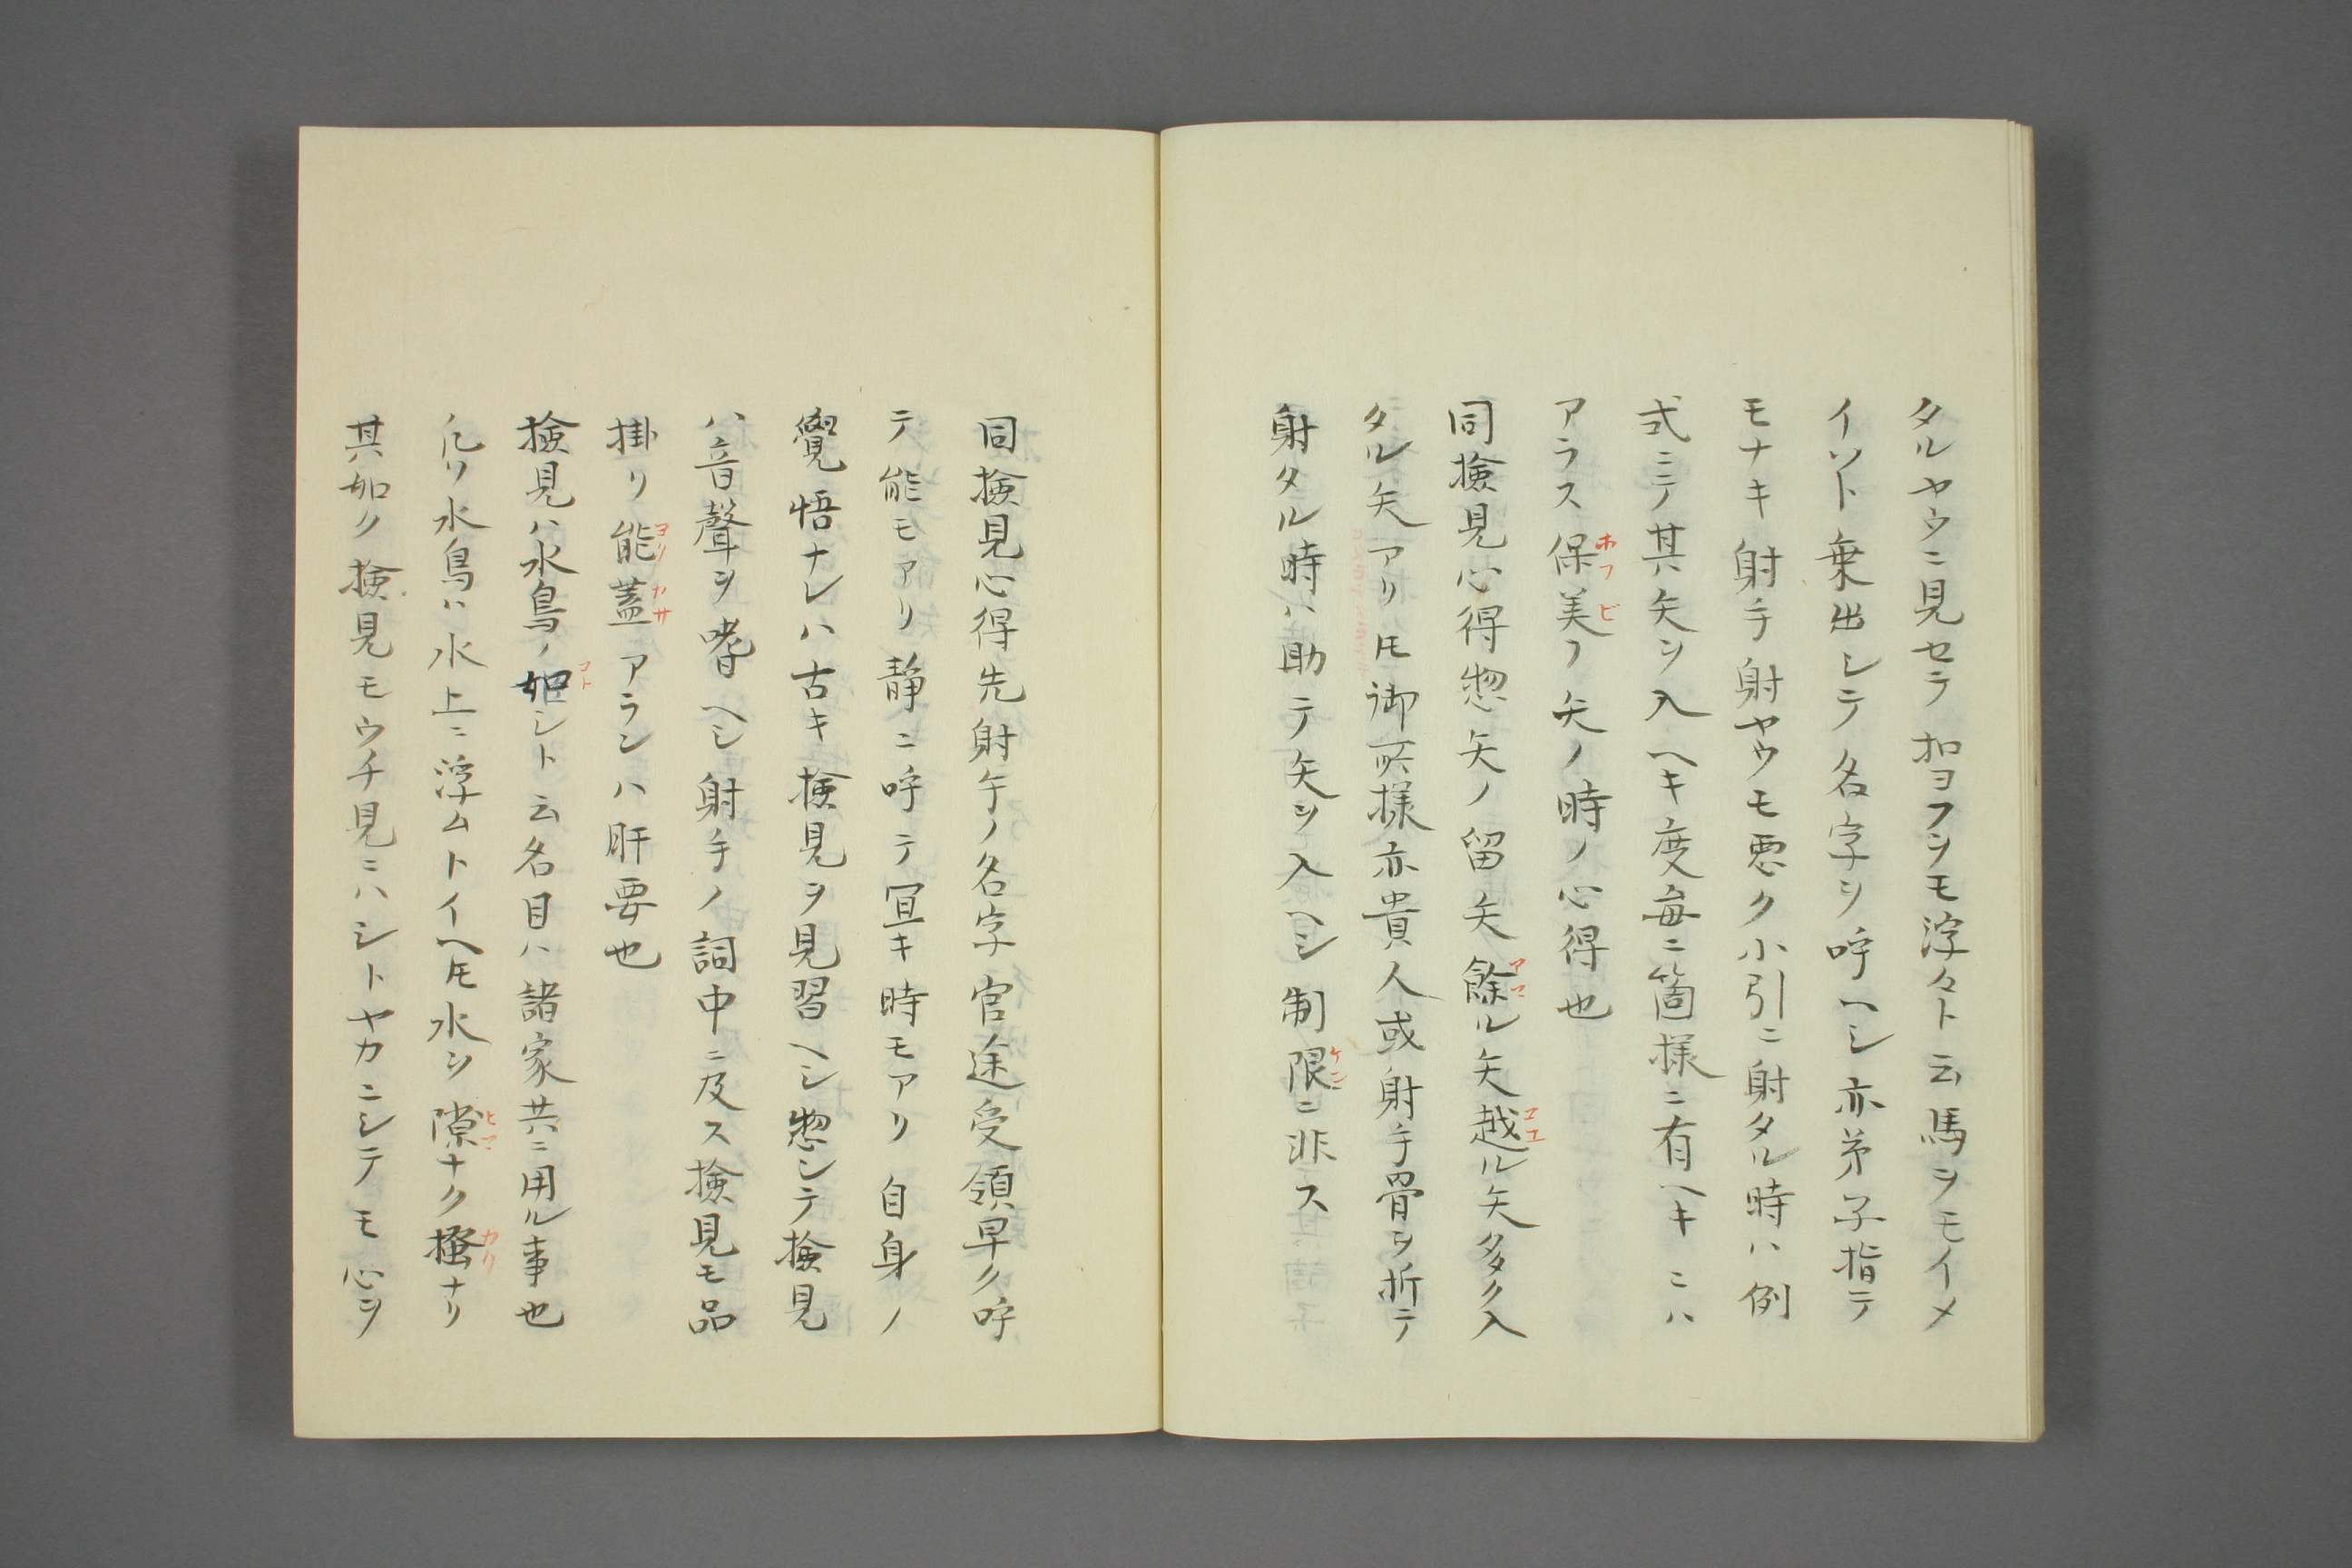 タルヤウニ見セテ扣ヨフシモ浮々ト云馬ヲモイメ
イソト乗出シテ名字ヲ呼ヘシ亦弟子指テ
モナキ射手射ヤウモ悪ク小引ニ射タル時ハ例
式ニテ其矢ヲ入ヘキ度毎ニ箇様ニ有ヘキニハ
アラス保美ノ矢ノ時ノ心得也
同撿見心得惣矢ノ留矢餘ル矢越ル矢多ク入
タル矢アリ𪜈御所様亦貴人或射手骨ヲ折テ
射タル時ハ助テ矢ヲ入ヘシ制限ニ非ス
同撿見心得先射手ノ名字官途受領早ク呼
テ能モアリ静ニ呼テ宜キ時モアリ自身ノ
覺悟ナレハ古キ撿見ヲ見習ヘシ惣シテ撿見
ハ音聲ヲ嗜ヘシ射手ノ詞中ニ及ス撿見モ品
掛リ能蓋アランハ肝要也
撿見ハ水鳥ノ如シト云名目ハ諸家共ニ用ル事也
凡リ水鳥ハ水上ニ浮ムトイヘ𪜈水ヲ隙ナク掻ナリ
其如ク撿見モウチ見ニハシトヤカニシテモ心ヲ